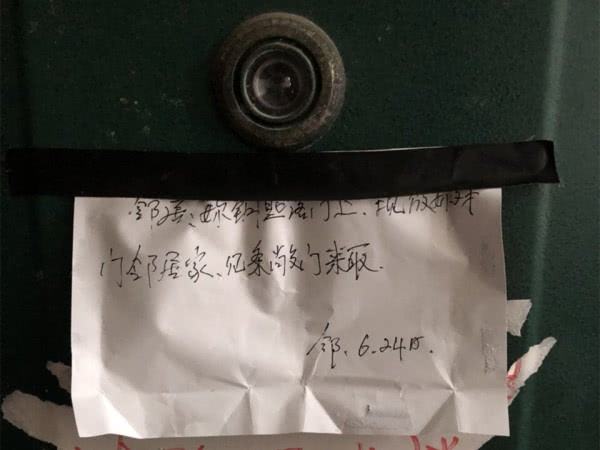 邻居、您钥匙落门上、现放在对
门邻居家、见条敲门来取.
邻、6.24日.